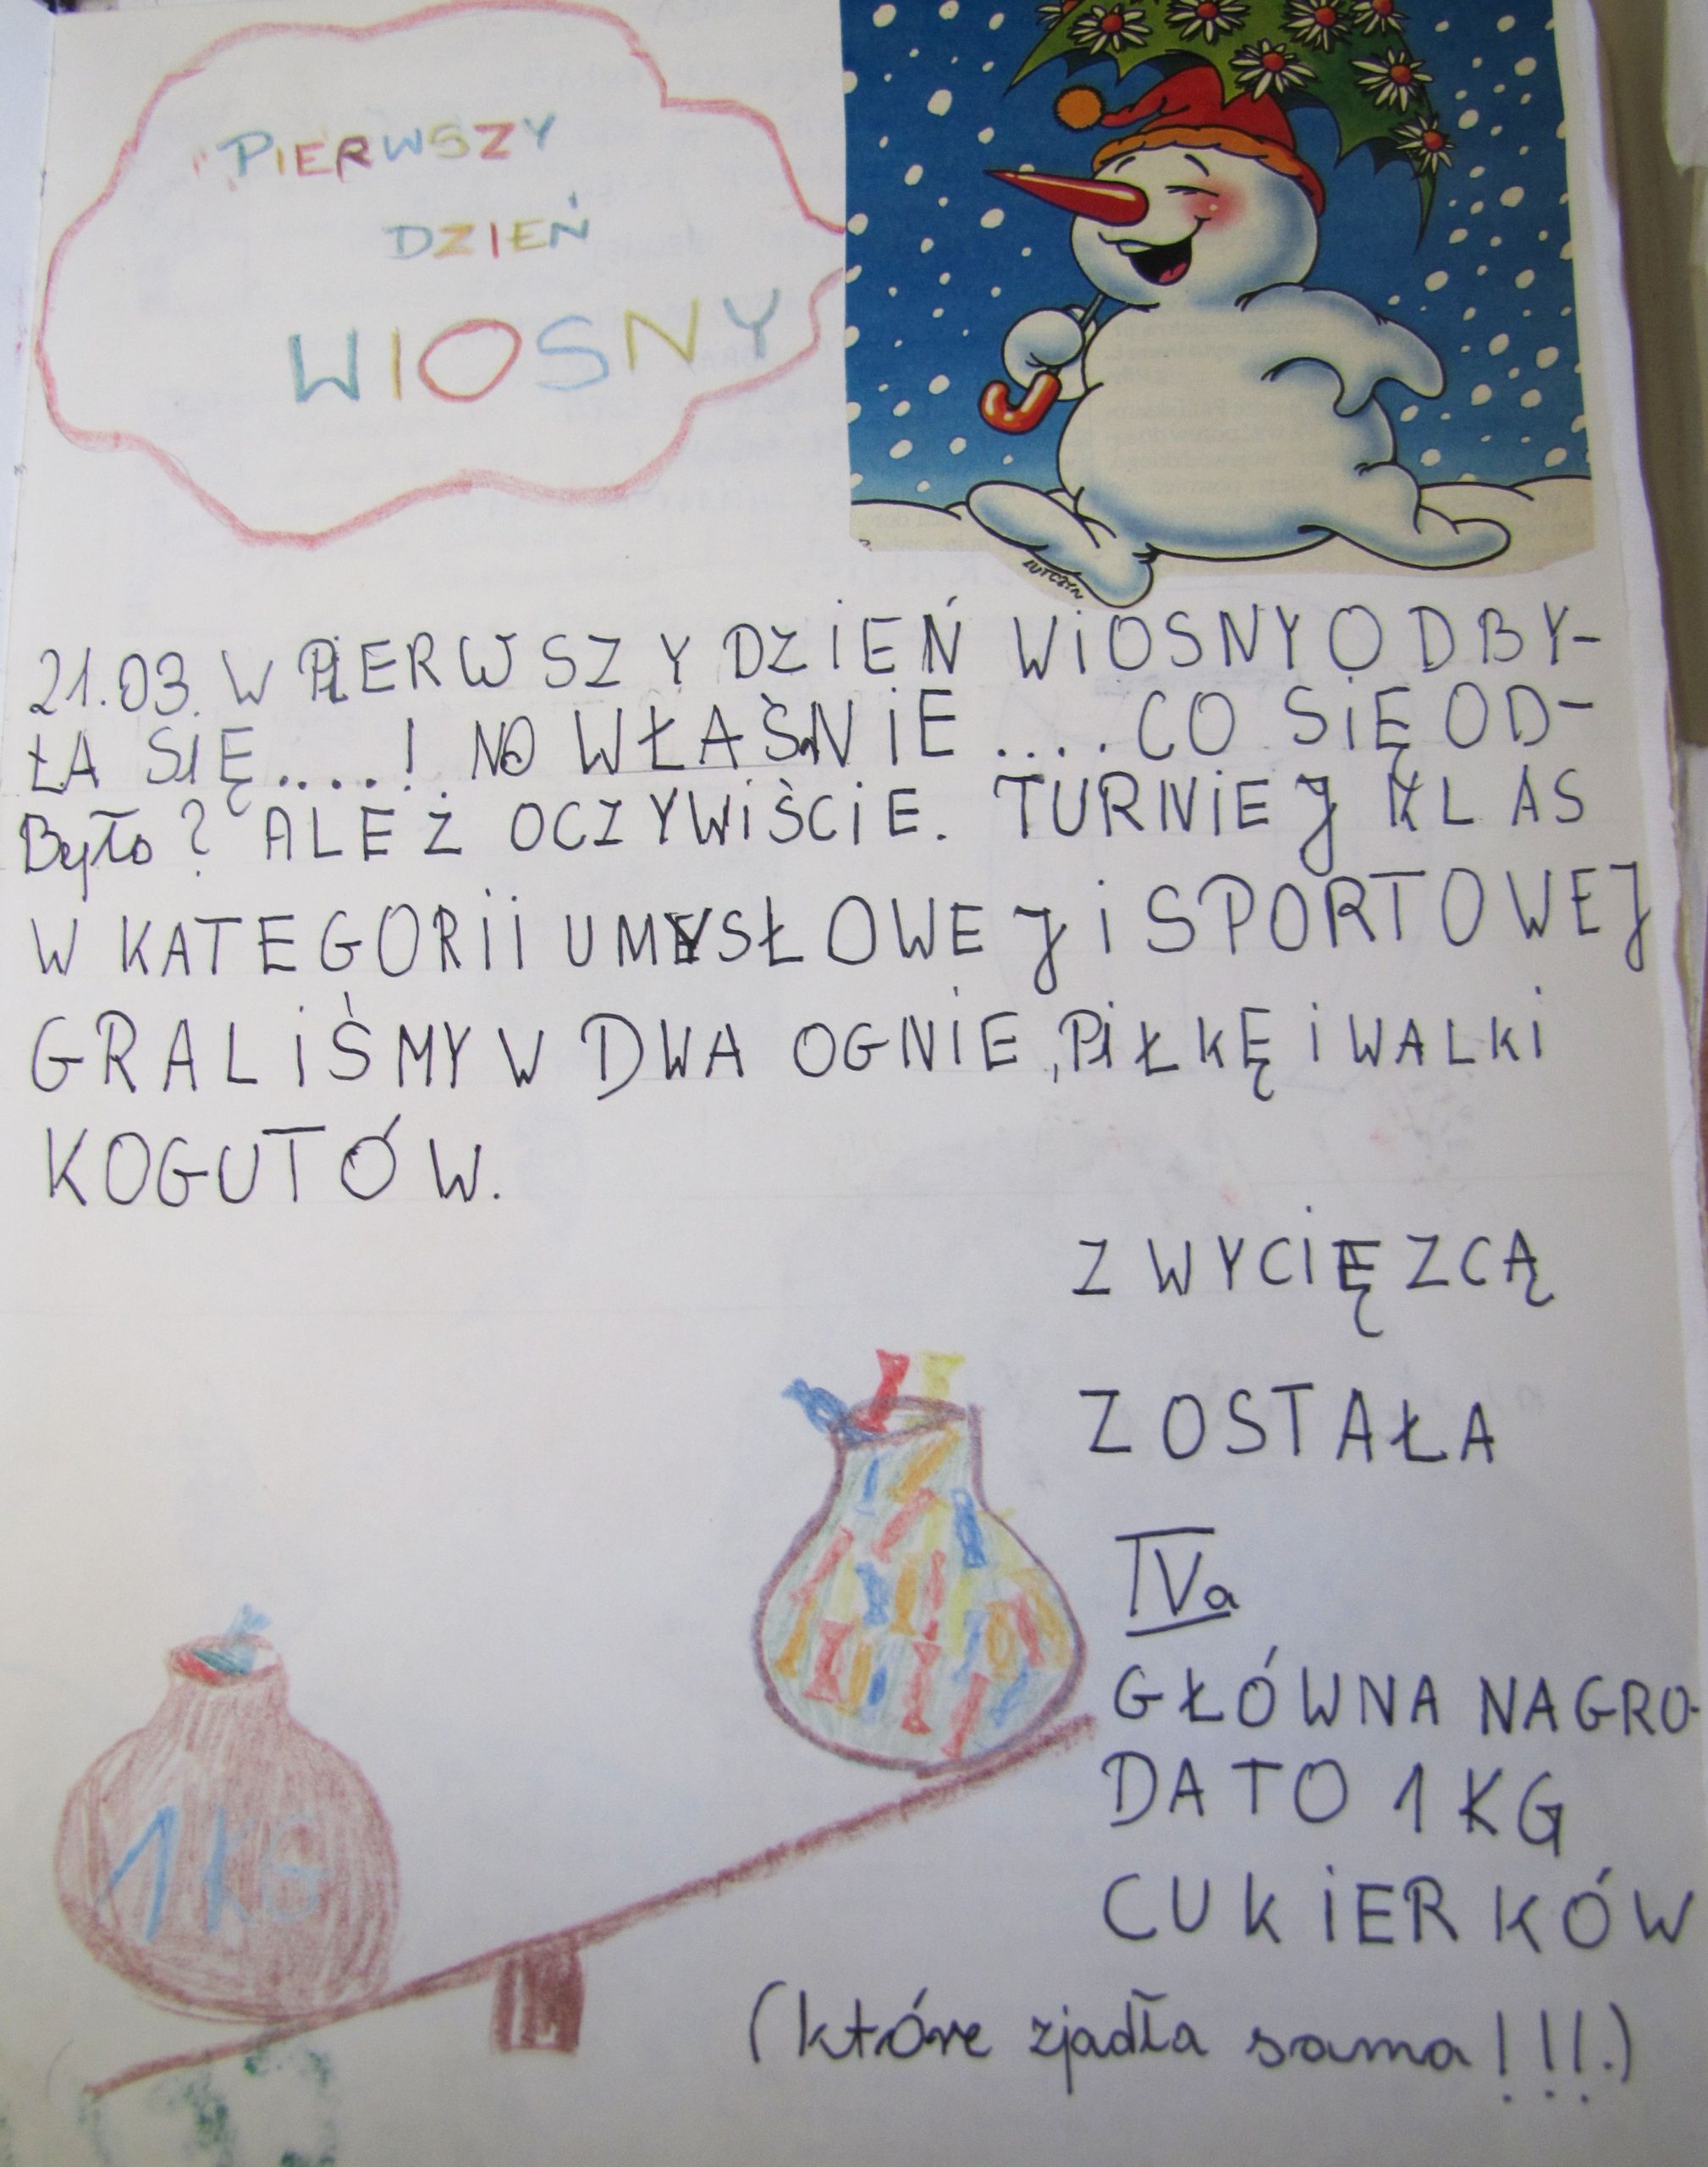 PIERWSZY
DZIEŃ
WIOSNY
LUTCZYN
21.03. W PIERWSZY DZIEŃ WIOSNY ODBY-
ŁA SIĘ....! NO WŁAŚNIE .... CO SIĘ OD-
Było? ALEŻ OCZYWIŚCIE. TURNIEJ KLAS
W KATEGORII UMYSŁOWEJ I SPORTOWEJ
GRALIŚMY W DWA OGNIE, PIŁKĘ I WALKI
KOGUTÓW.
ZWYCIĘZCĄ
ZOSTAŁA
IVa
GŁÓWNA NAGRO-
DA TO 1 KG
CUKIERKÓW
(które zjadła sama!!!.)
1KG